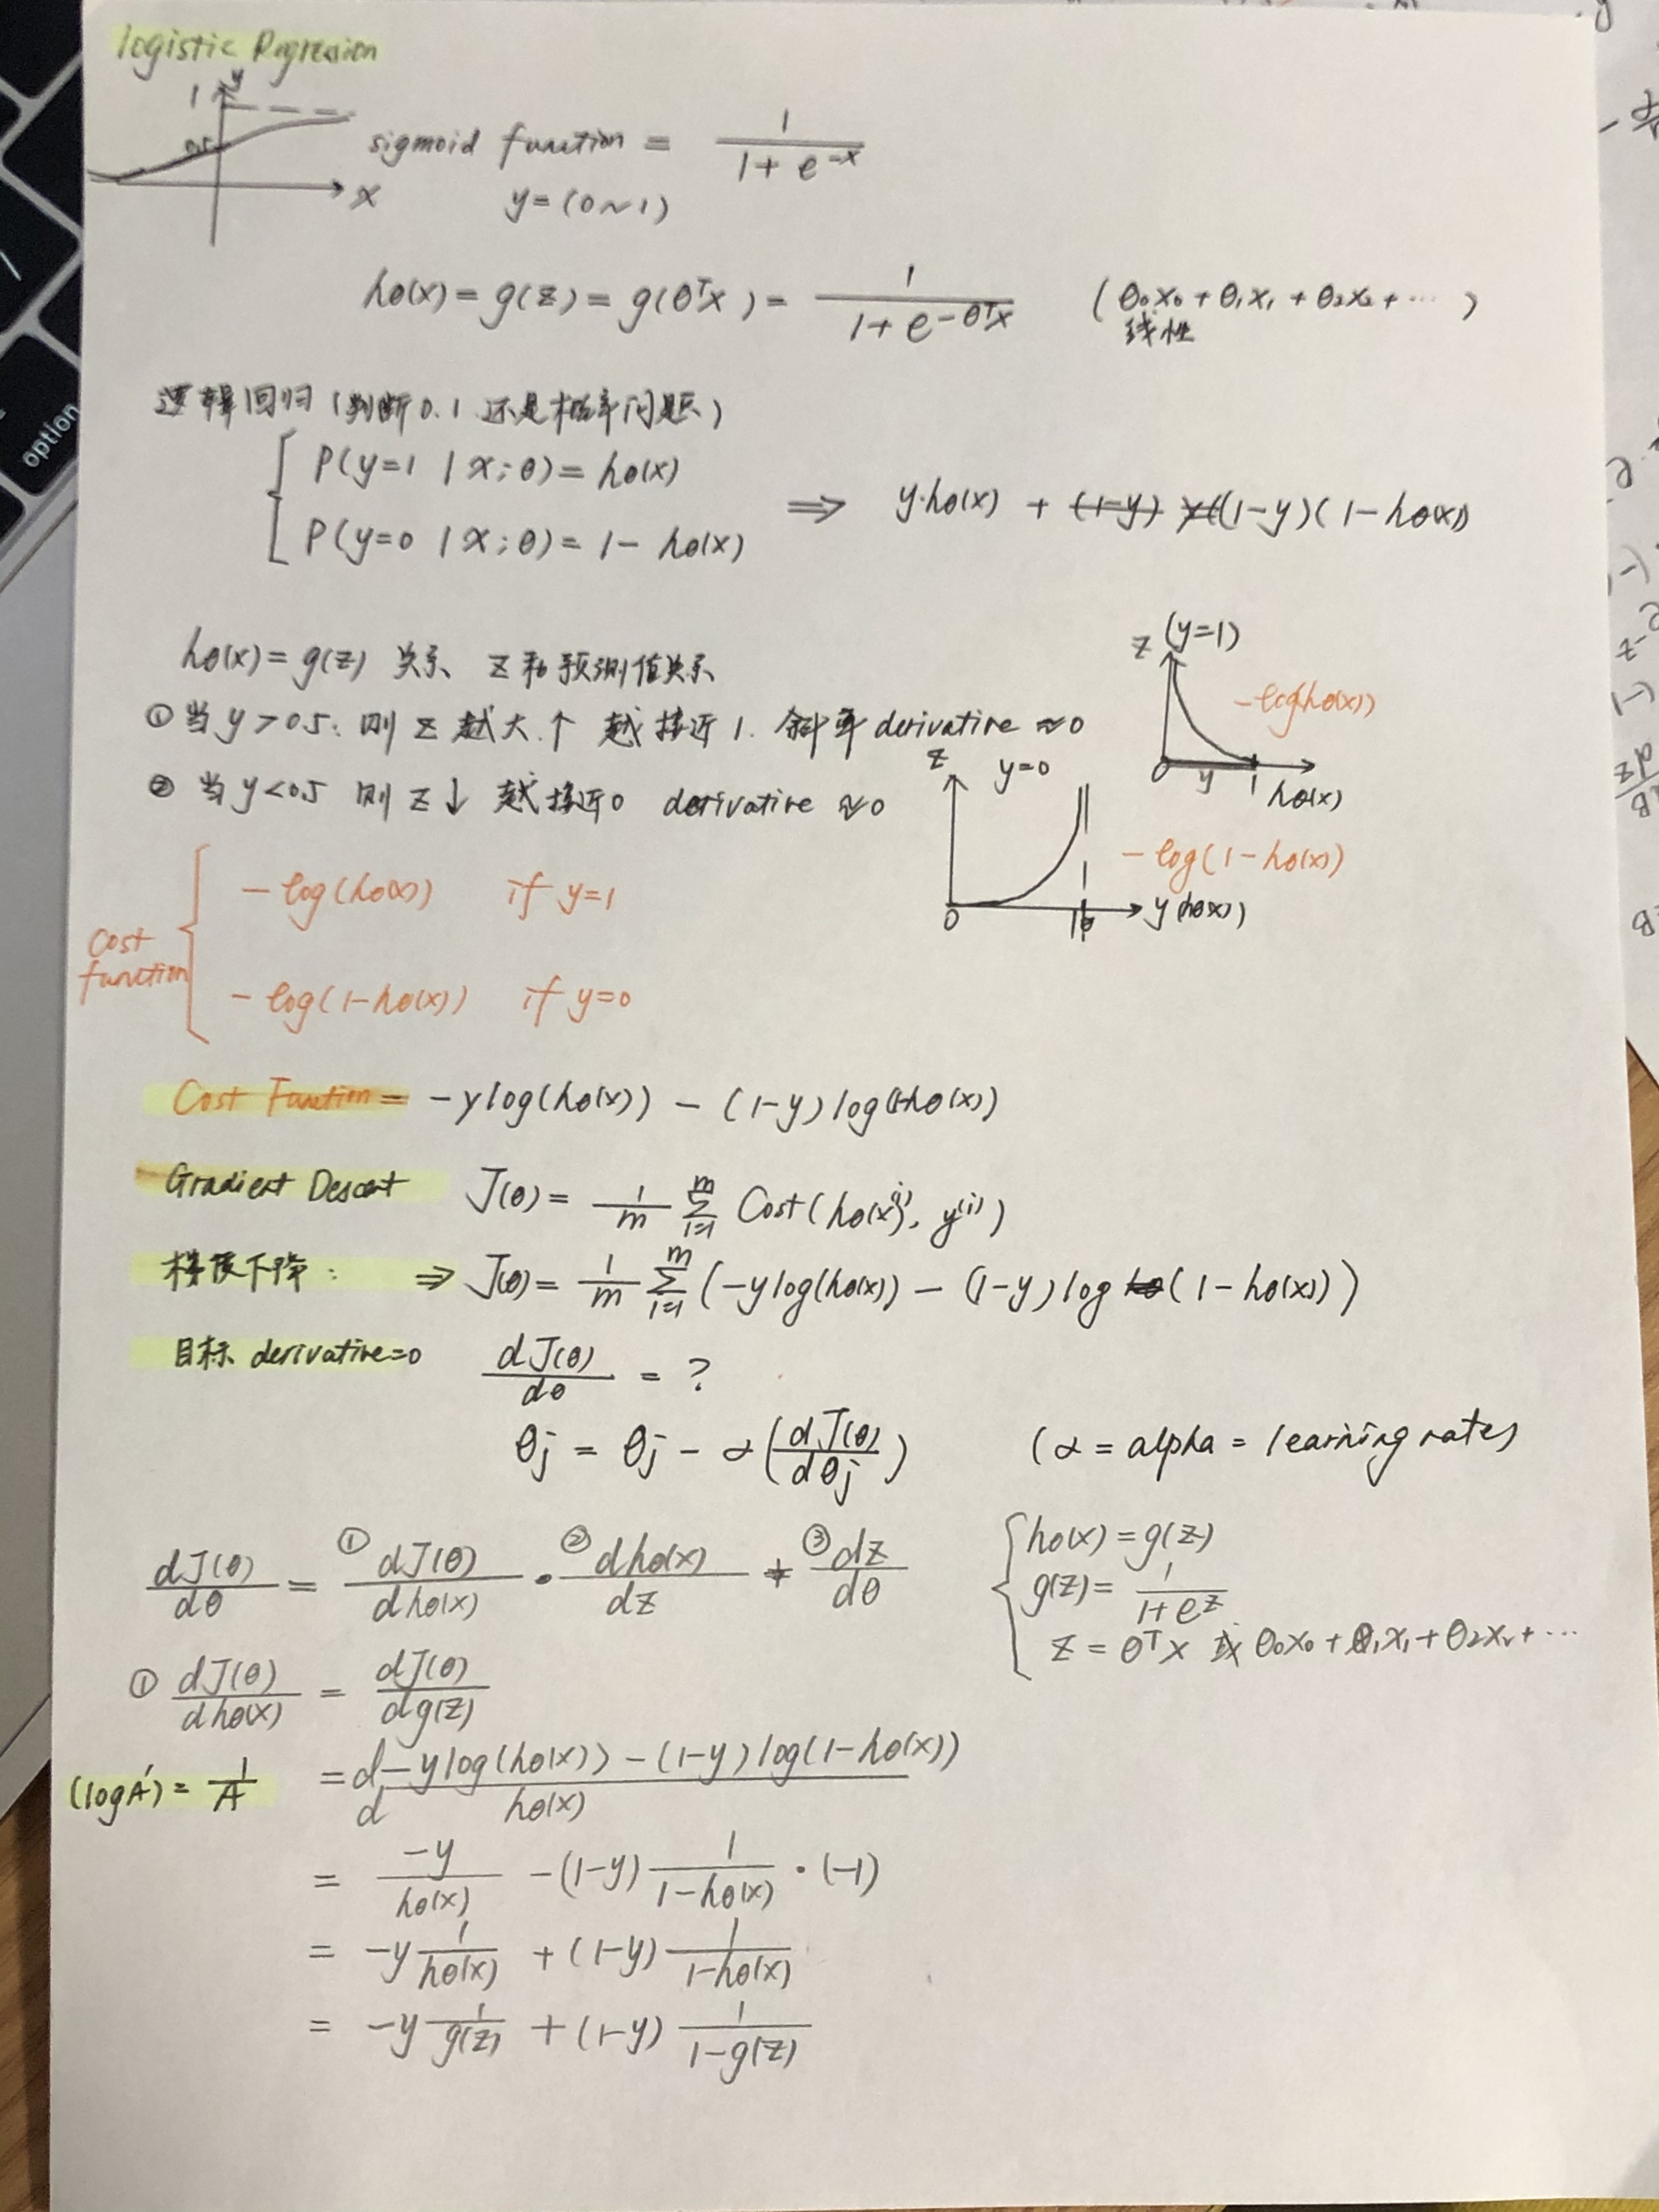 logistic Rogression
y
1
0.5
x
sigmoid function = 1 / (1 + e^-x)
y = (0~1)
hθ(x) = g(z) = g(θᵀx) = 1 / (1 + e^-θᵀx) (θ₀x₀ + θ₁x₁ + θ₂x₂ + ⋯)
线性
逻辑回归 (判断0.1 还是概率问题)
P(y=1 | x; θ) = hθ(x)
P(y=0 | x; θ) = 1 - hθ(x)
⇒ y·hθ(x) + (1-y)(1-hθ(x))
hθ(x) = g(z) 关系 z和预测值关系
① 当 y > 0.5. 则 z 越大 ↑ 越接近 1. 斜率 derivative ≈ 0
② 当 y < 0.5 则 z ↓ 越接近 0 derivative ≈ 0
z (y=1)
-log(hθ(x))
0 y 1 hθ(x)
z y=0
-log(1-hθ(x))
0 1 y(hθ(x))
Cost function
-log(hθ(x)) if y=1
-log(1-hθ(x)) if y=0
Cost Function = -y log(hθ(x)) - (1-y) log(1-hθ(x))
Gradient Descent J(θ) = 1/m Σ_{i=1}^{m} Cost(hθ(x^(i)), y^(i))
梯度下降: ⇒ J(θ) = 1/m Σ_{i=1}^{m} (-y log(hθ(x)) - (1-y) log (1-hθ(x)))
目标 derivative=0 dJ(θ)/dθ = ?
θj = θj - α(dJ(θ)/dθj) (α = alpha = learning rates)
dJ(θ)/dθ = ① dJ(θ)/dhθ(x) · ② dhθ(x)/dz * ③ dz/dθ
hθ(x) = g(z)
g(z) = 1/(1+e^z)
z = θᵀx θ₀x₀ + θ₁x₁ + θ₂x₂ + ⋯
① dJ(θ)/dhθ(x) = dJ(θ)/dg(z)
(logA)' = 1/A = d -y log(hθ(x)) - (1-y) log(1-hθ(x)) / d hθ(x)
= -y/hθ(x) - (1-y) 1/(1-hθ(x)) · (-1)
= -y 1/hθ(x) + (1-y) 1/(1-hθ(x))
= -y 1/g(z) + (1-y) 1/(1-g(z))
option